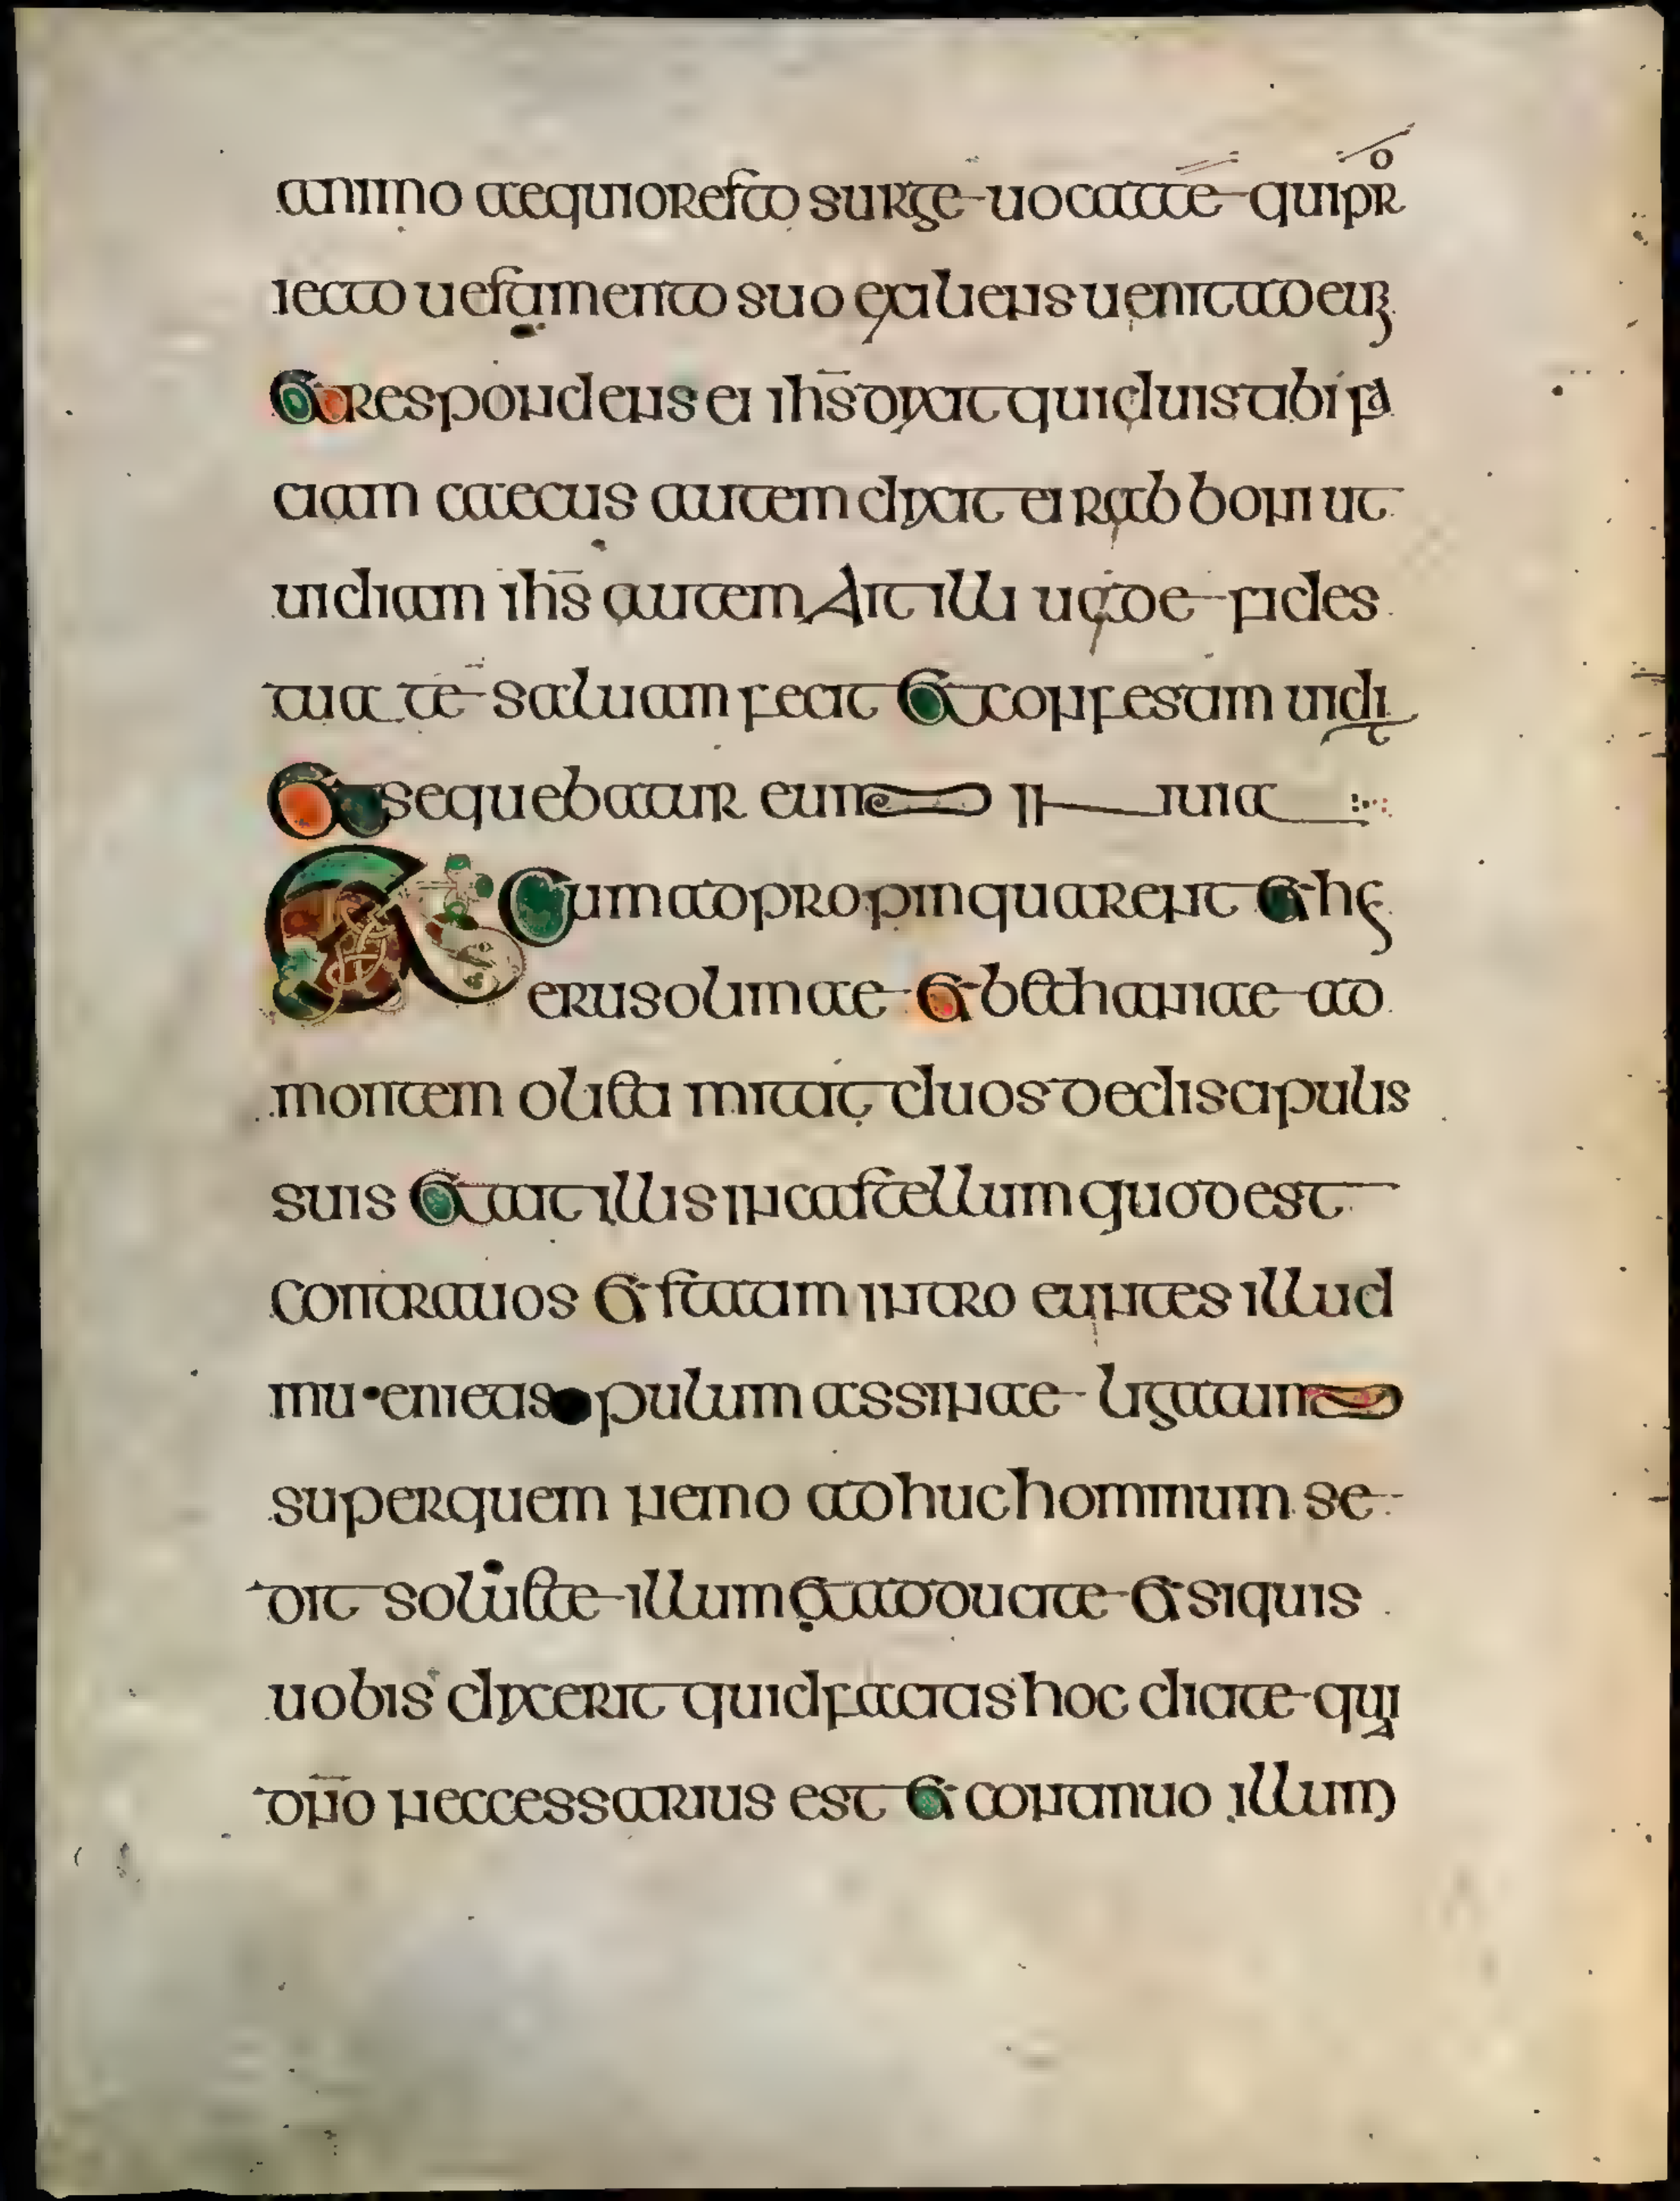 animo aequior esto surge uocat te qui pro
iecto uestimento suo exiliens uenit ad eum
Et respondens ei ihs dixit quid uis tibi fa
ciam caecus autem dixit ei rabboni ut
uidiam ihs autem Ait illi uade fides
tua te saluam fecit Et confestim uidit
Et sequebatur eum in uia
Et Cum adpropinquarent et hi
erusolimae et bethaniae ad
montem oliueti mitat duos de discipulis
suis Et ait illis in castellum quod est
contra uos et statim intro euntes illud
inuenietis pulum assinae ligatum
super quem nemo adhuc hominum se
dit soluite illum et adducite et siquis
uobis dixerit quid facitis hoc dicite qui
dno neccessarius est et continuo illum